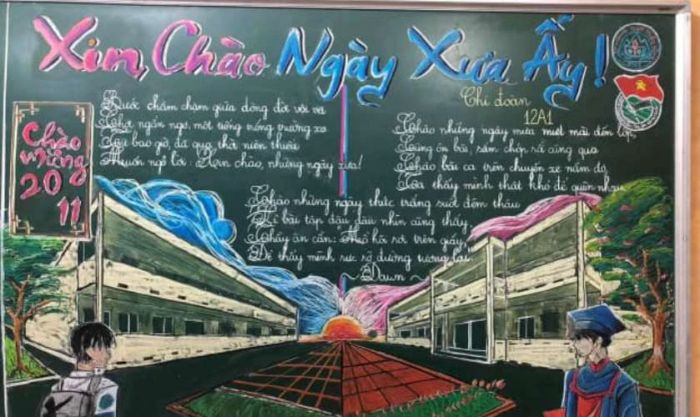 Xin Chào Ngày Xưa Ấy!
Chi đoàn
12A1
Chào
mừng
20
11
Bước chầm chậm giữa dòng đời vội vã
Chợt ngẩn ngơ, một tiếng trống trường xa
bao giờ, đã qua thời niên thiếu
Muốn ngỏ lời: Xin chào, những ngày xưa!
Chào những ngày mưa miết mải đến lớp
Cùng ôn bài, rầm chép rả cùng qua
Chào bài ca trên chuyến xe năm đó
thấy mình thật khó để quên nhau
Chào những ngày thức trắng suốt đêm thâu
Vì bài tập dẫu đau nhìn cũng thấy
Thầy ân cần: Mồ hôi rơi trên giấy
Để thấy mình rực rỡ đường tương lai
~Dawn~